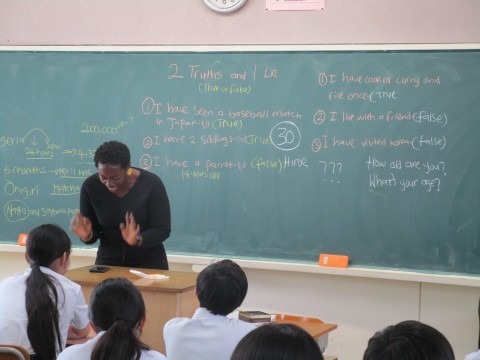 2 Truths and 1 Lie
(True or False)
200,000
① I have seen a baseball match
in Japan (True)
② I have 2 siblings (True)
③ I have a parrot (false) Hiroe
30
6 months
Onigiri
Matcha
Natto and Soybean
① I have cooked curry and
rice once (True
② I live with a friend (false)
③ I have visited Korea (false)
??? How old are you?
... What's your age?